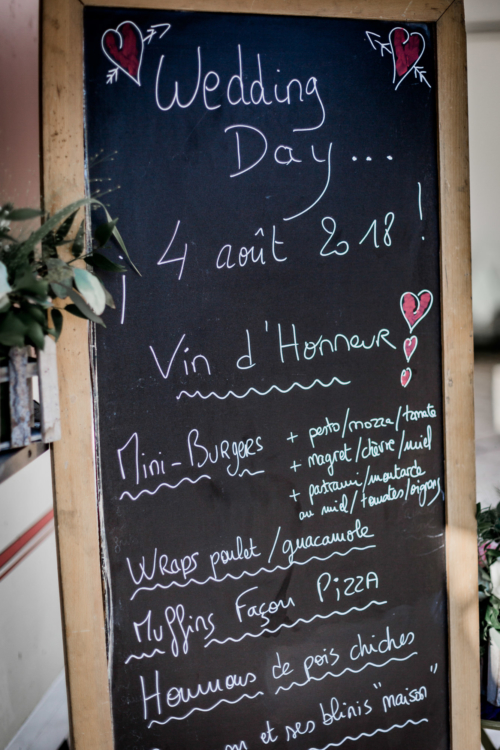 Wedding
Day...
¡ 4 août 2018 !
Vin d'Honneur
Mini-Burgers + pesto/mozza/tomate
+ magret/chèvre/miel
+ pastrami/moutarde
au miel/tomates/oignons
Wraps poulet/guacamole
Muffins Façon Pizza
Houmous de pois chiches
et ses blinis "maison"